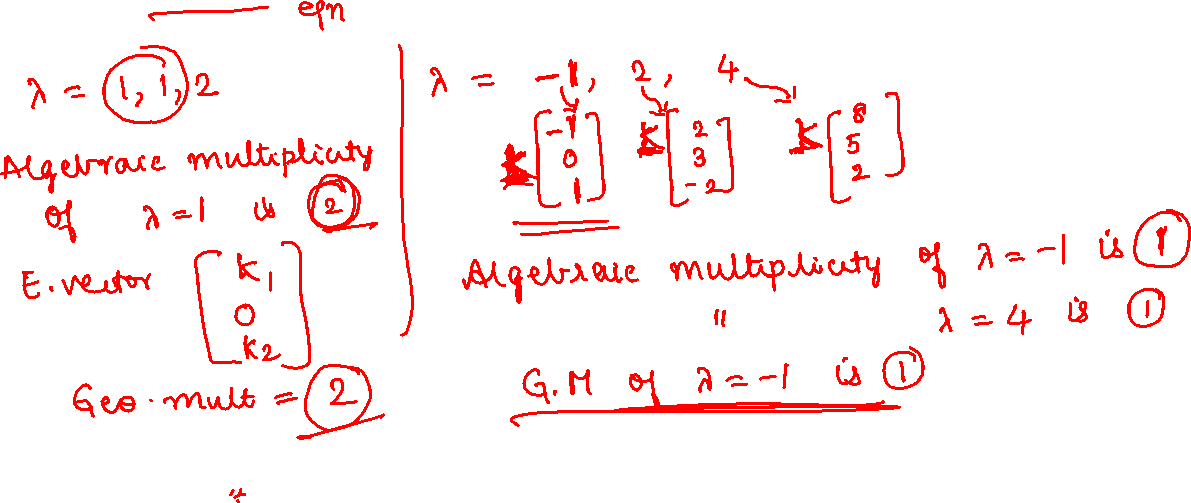 eqn
λ = 1, 1, 2
Algebraic multiplicity
of λ=1 is 2
E. vector [k1 0 k2]
Geo. mult = 2
λ = -1, 2, 4
k[-1 0 1] k[2 3 -2] k[8 5 2]
Algebraic multiplicity of λ=-1 is 1
" λ=4 is 1
G.M of λ=-1 is 1